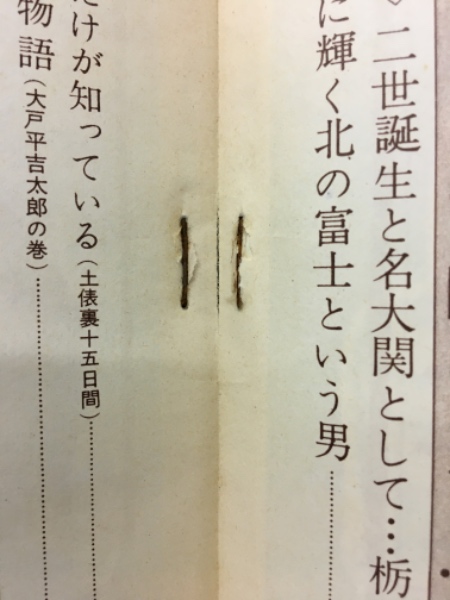 二世誕生と名大関として…栃
に輝く北の富士という男
けが知っている(土俵裏十五日間)
物語(大戸平吉太郎の巻)